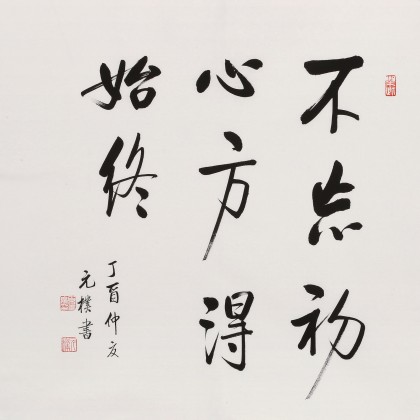 不忘初
心方得
始終
丁酉仲夏
元樸書